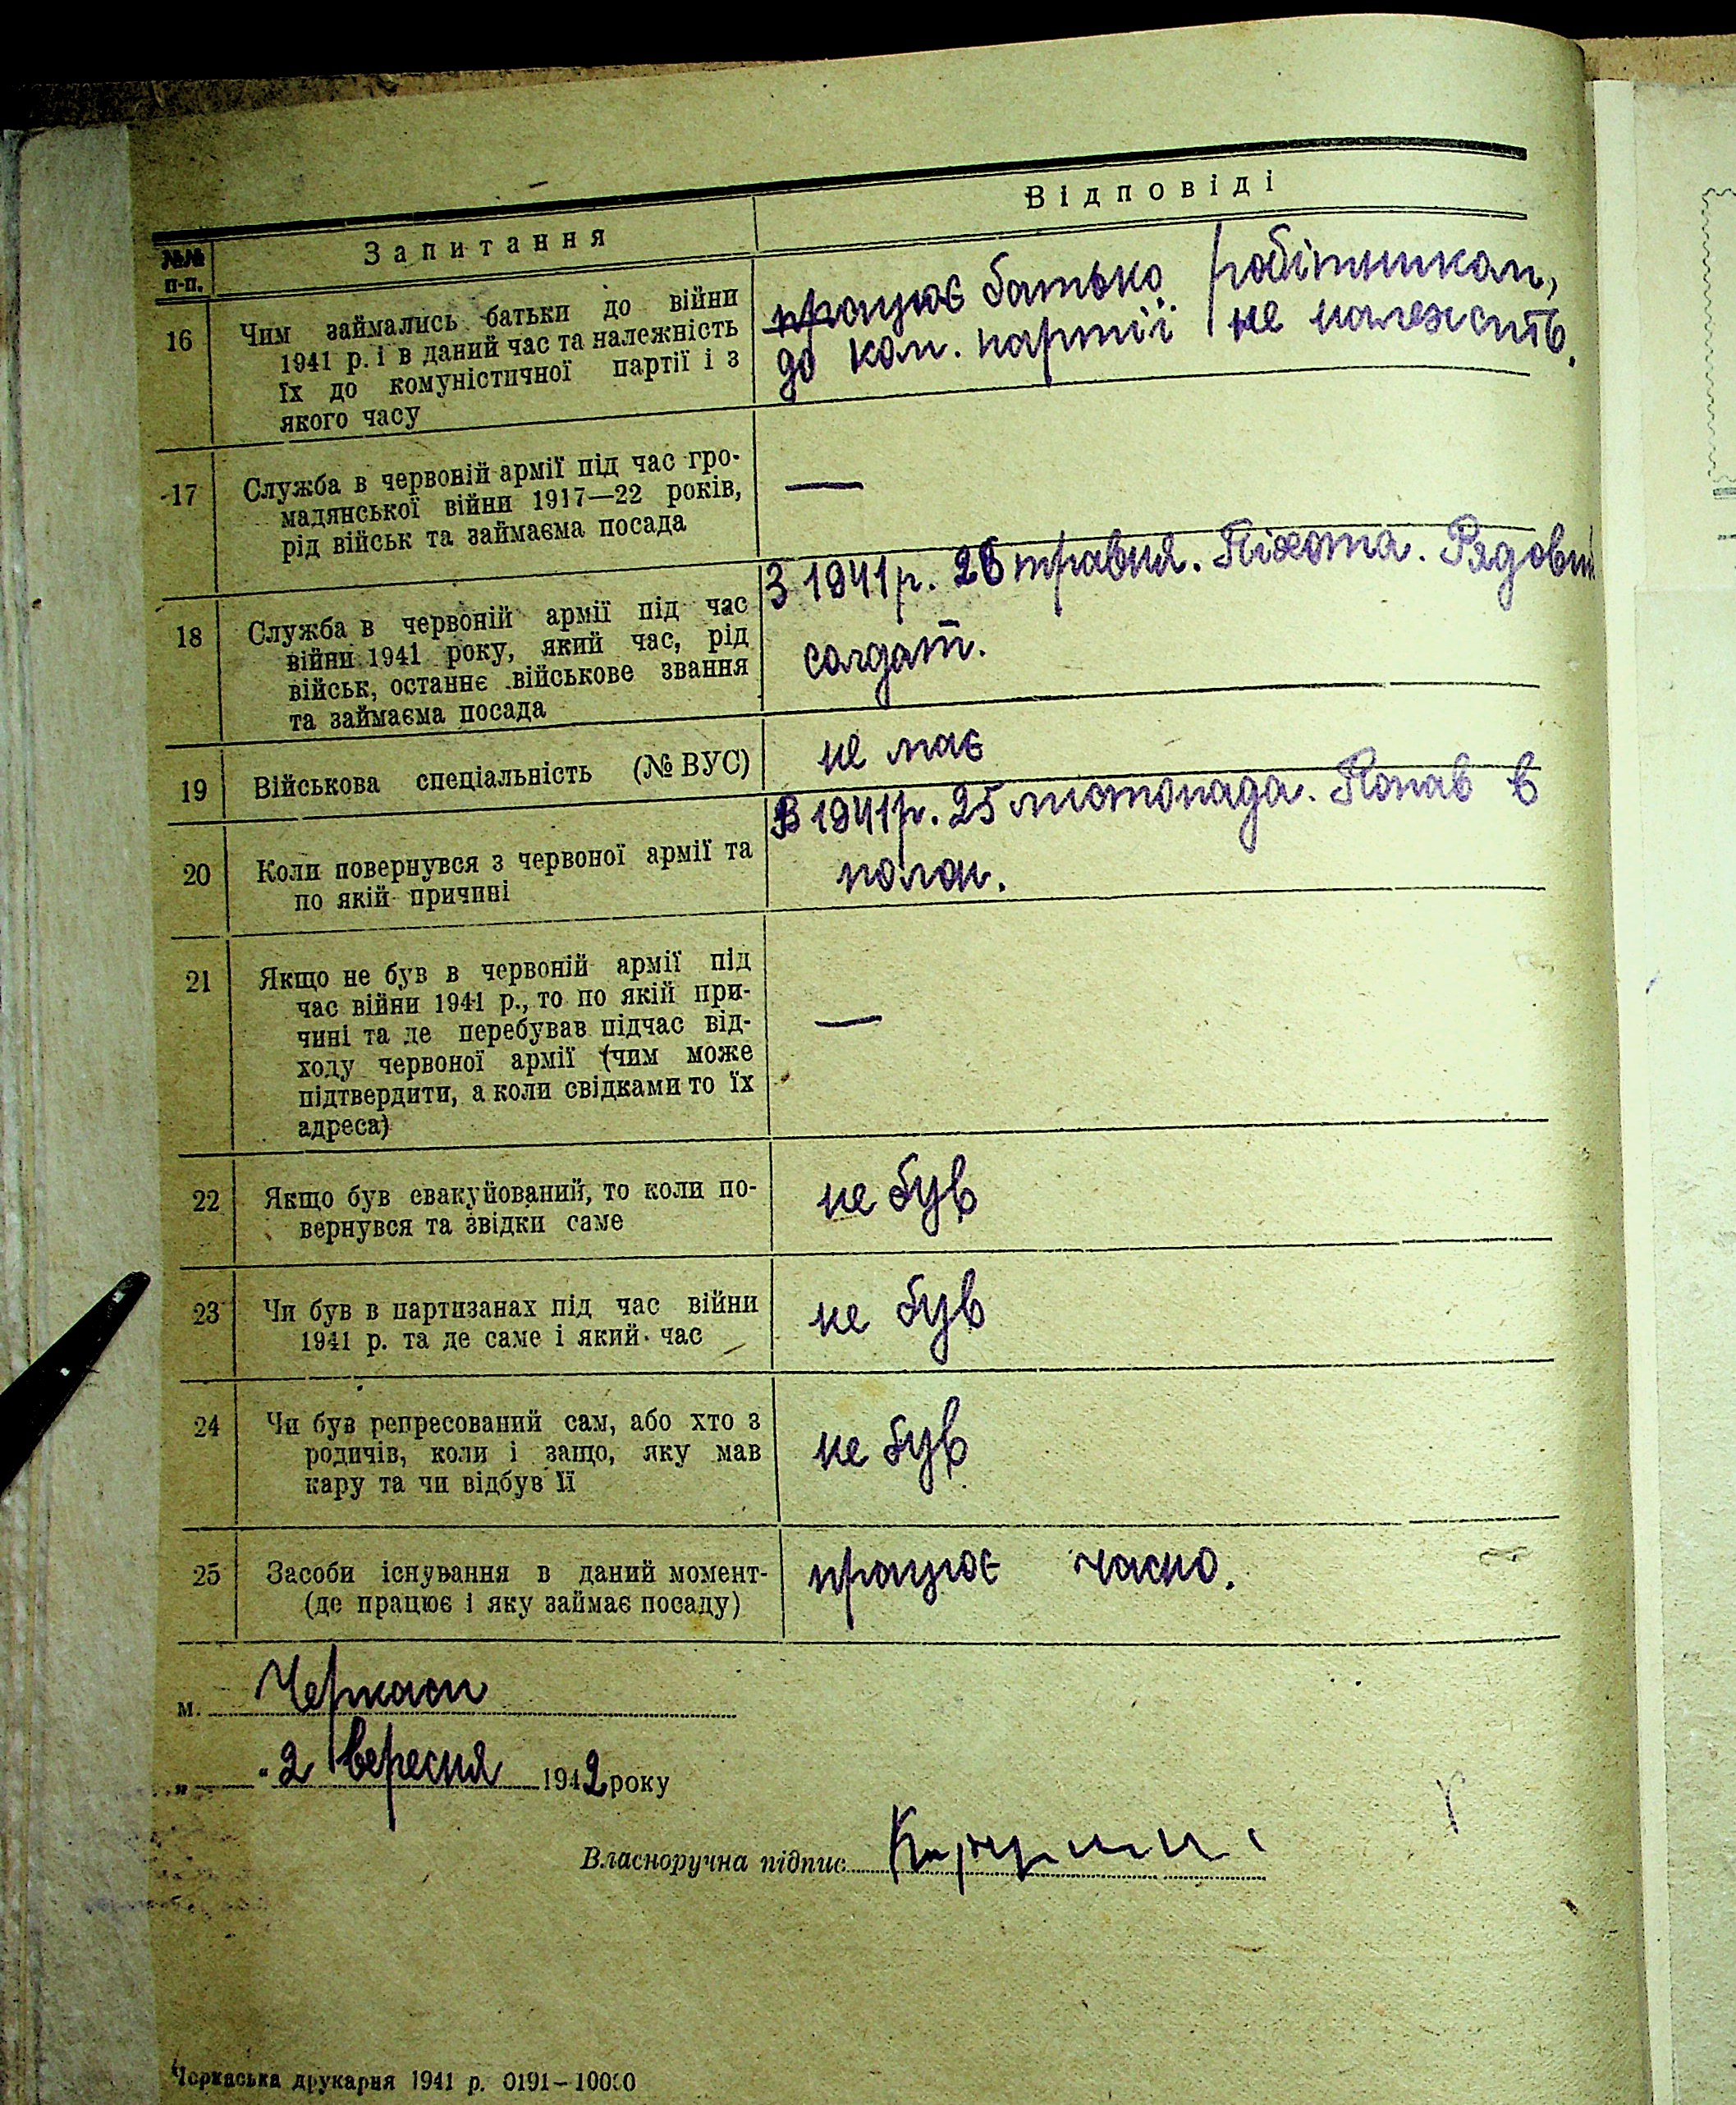 №№ п-п.
Запитання
Відповіді
16
Чим займались батьки до війни
1941 р. і в даний час та належність
їх до комуністичної партії і з
якого часу
працює батько робітником,
до ком. партії не належить.
17
Служба в червоній армії під час гро-
мадянської війни 1917—22 років,
рід військ та займаєма посада
—
18
Служба в червоній армії під час
війни 1941 року, який час, рід
військ, останнє військове звання
та займаєма посада
З 1941 р. 26 травня. Піхота. Рядовий
солдат.
19
Військова спеціальність (№ ВУС)
не має
20
Коли повернувся з червоної армії та
по якій причині
В 1941 р. 25 листопада. Попав в
полон.
21
Якщо не був в червоній армії під
час війни 1941 р., то по якій при-
чині та де перебував підчас від-
ходу червоної армії (чим може
підтвердити, а коли свідками то їх
адреса)
—
22
Якщо був евакуйований, то коли по-
вернувся та звідки саме
не був
23
Чи був в партизанах під час війни
1941 р. та де саме і який час
не був
24
Чи був репресований сам, або хто з
родичів, коли і защо, яку мав
кару та чи відбув її
не був
25
Засоби існування в даний момент-
(де працює і яку займає посаду)
працює часно.
м. Черкаси
„ “ 2 вересня 1942 року
Власноручна підпис
Черкаська друкарня 1941 р. 0191—10000